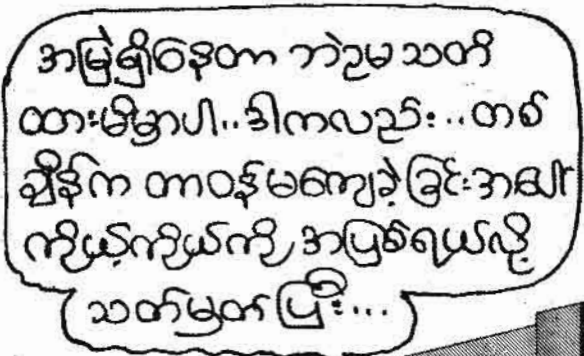 အမြဲရှိနေတာ ဘဲဥမ သတိ
ထားမိမှာပါ..ဒါကလည်း..တစ်
ချိန်က တာဝန်မကျေခဲ့ခြင်းအပေါ်
ကိုယ့်ကိုယ်ကို အပြစ်ရယ်လို့
သတ်မှတ်ပြီး...